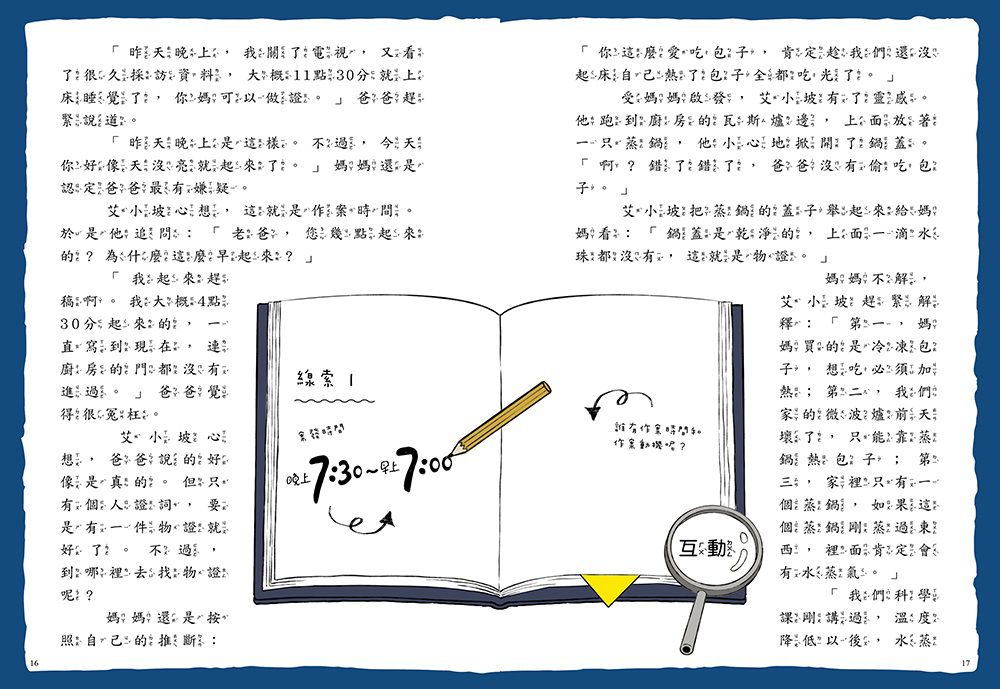 「昨天晚上，我關了電視，又看
了很久採訪資料，大概11點30分就上
床睡覺了，你媽可以做證。」爸爸趕
緊說道。
「昨天晚上是這樣。不過，今天
你好像天沒亮就起來了。」媽媽還是
認定爸爸最有嫌疑。
艾小坡心想，這就是作案時間。
於是他追問：「老爸，您幾點起來
的？為什麼這麼早起來？」
「我起來趕
稿啊。我大概4點
30分起來的，一
直寫到現在，連
廚房的門都沒有
進過。」爸爸覺
得很冤枉。
艾小坡心
想，爸爸說的好
像是真的。但只
有個人證詞，要
是有一件物證就
好了。不過，
到哪裡去找物證
呢？
媽媽還是按
照自己的推斷：
線索1
案發時間
晚上7:30~早上7:00
16
「你這麼愛吃包子，肯定趁我們還沒
起床自己熱了包子全都吃光了。」
受媽媽啟發，艾小坡有了靈感。
他跑到廚房的瓦斯爐邊，上面放著
一只蒸鍋，他小心地掀開了鍋蓋。
「啊？錯了錯了，爸爸沒有偷吃包
子。」
艾小坡把蒸鍋的蓋子舉起來給媽
媽看：「鍋蓋是乾淨的，上面一滴水
珠都沒有，這就是物證。」
媽媽不解，
艾小坡趕緊解
釋：「第一，媽
媽買的是冷凍包
子，想吃必須加
熱；第二，我們
家的微波爐前天
壞了，只能靠蒸
鍋熱包子；第
三，家裡只有一
個蒸鍋，如果這
個蒸鍋剛蒸過東
西，裡面肯定會
有水蒸氣。」
「我們科學
課剛講過，溫度
降低以後，水蒸
誰有作案時間和
作案動機呢？
互動
17